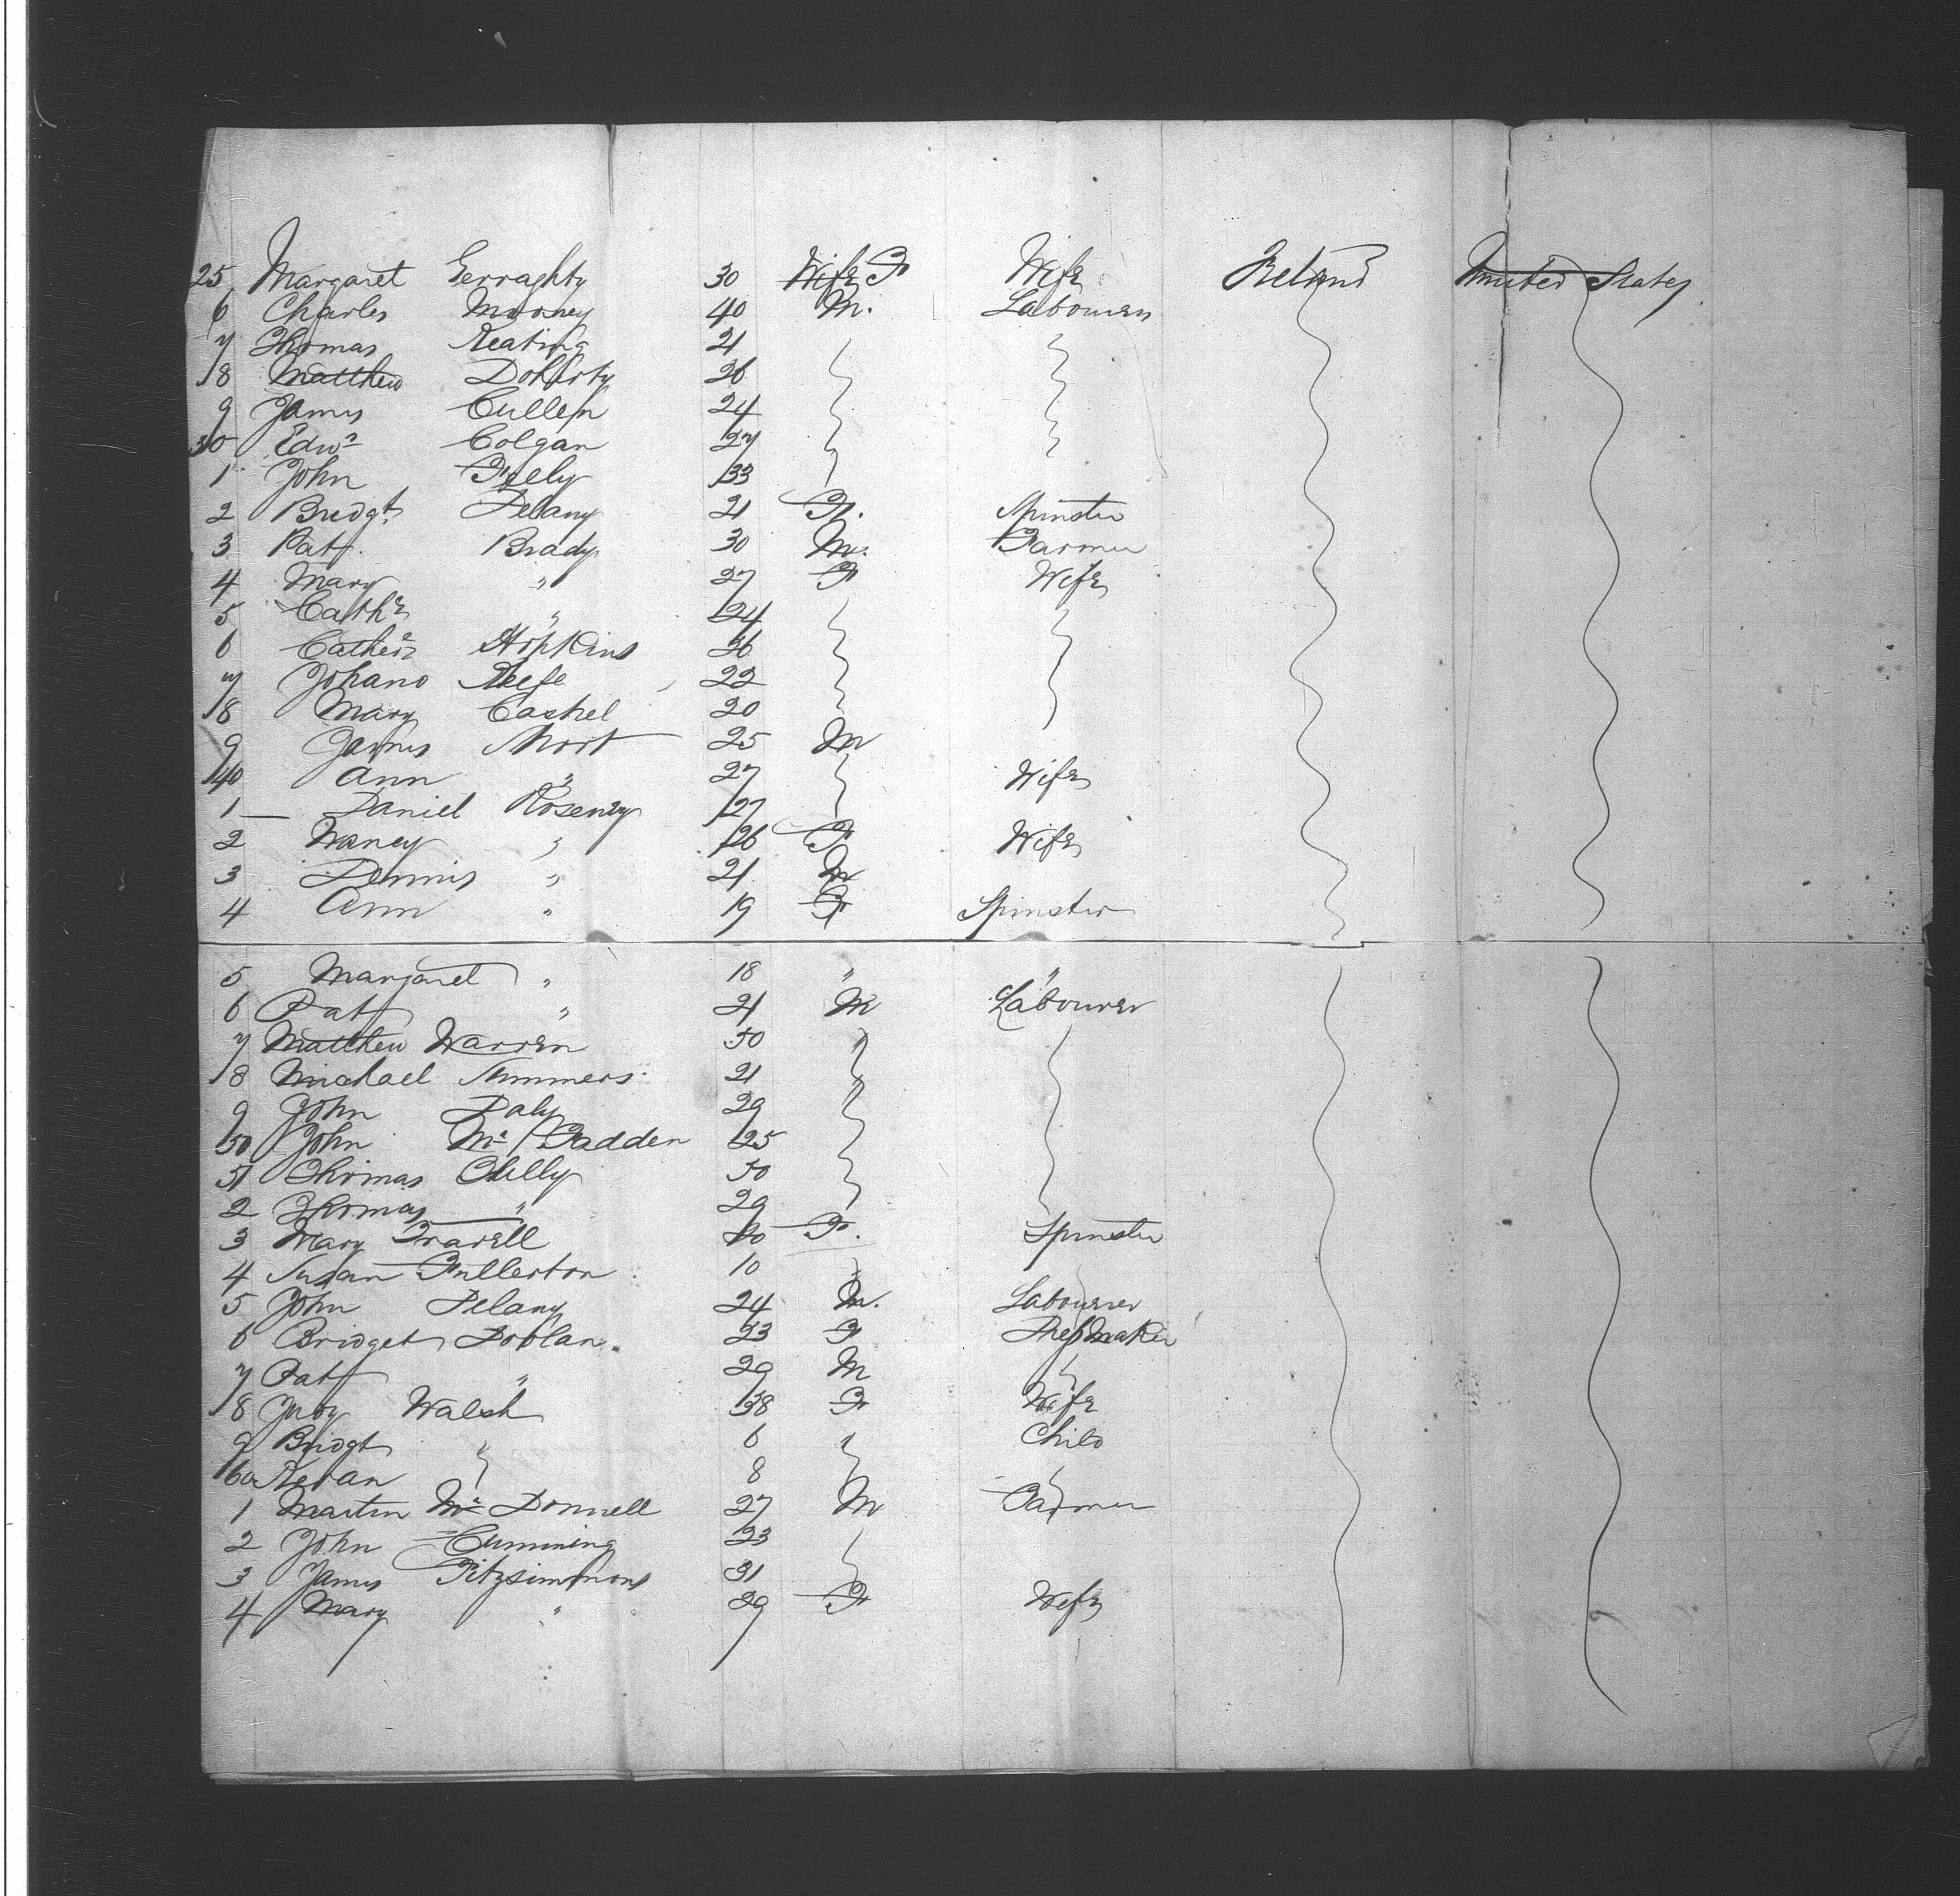 25 Margaret Gerraghty 30 Wife F Wife Ireland United States
6 Charles Mooney 40 M. Labourer
7 Thomas Keating 21
8 Matthew Doherty 26
9 James Cullen 24
30 Edwd Colgan 27
1 John Feely 33
2 Bridgt Delany 21 F. Spinster
3 Patt. Brady 30 M. Farmer
4 Mary " 27 F Wife
5 Cathe " 24
6 Cathere Hopkins 26
7 Johano Keefe 22
8 Mary Cashel 20
9 James Short 25 M
40 Ann " 27 Wife
1 Daniel 27
2 Nancy " 26 F Wife
3 Dennis " 21 M
4 Ann " 19 F Spinster
5 Margaret " 18 " "
6 Patt " 21 M Labourer
7 Matthew Warren 50 "
8 Michael Summers 21
9 John Daly 29 "
50 John Mc Fadden 25
51 Thomas 50
2 Thomas " 29
3 Mary 20 F. Spinster
4 Susan Fullerton 10
5 John Delany 24 M. Labourer
6 Bridget Doolan. 23 F Dressmaker
7 Patt " 29 M
8 Judy Walsh 38 F Wife
9 Bridgt " 6 " Child
60 Keran 8
1 Martin Mc Donnell 27 M Farmer
2 John Cumming 23
3 James Fitzsimmons 31
4 Mary " 29 F Wife